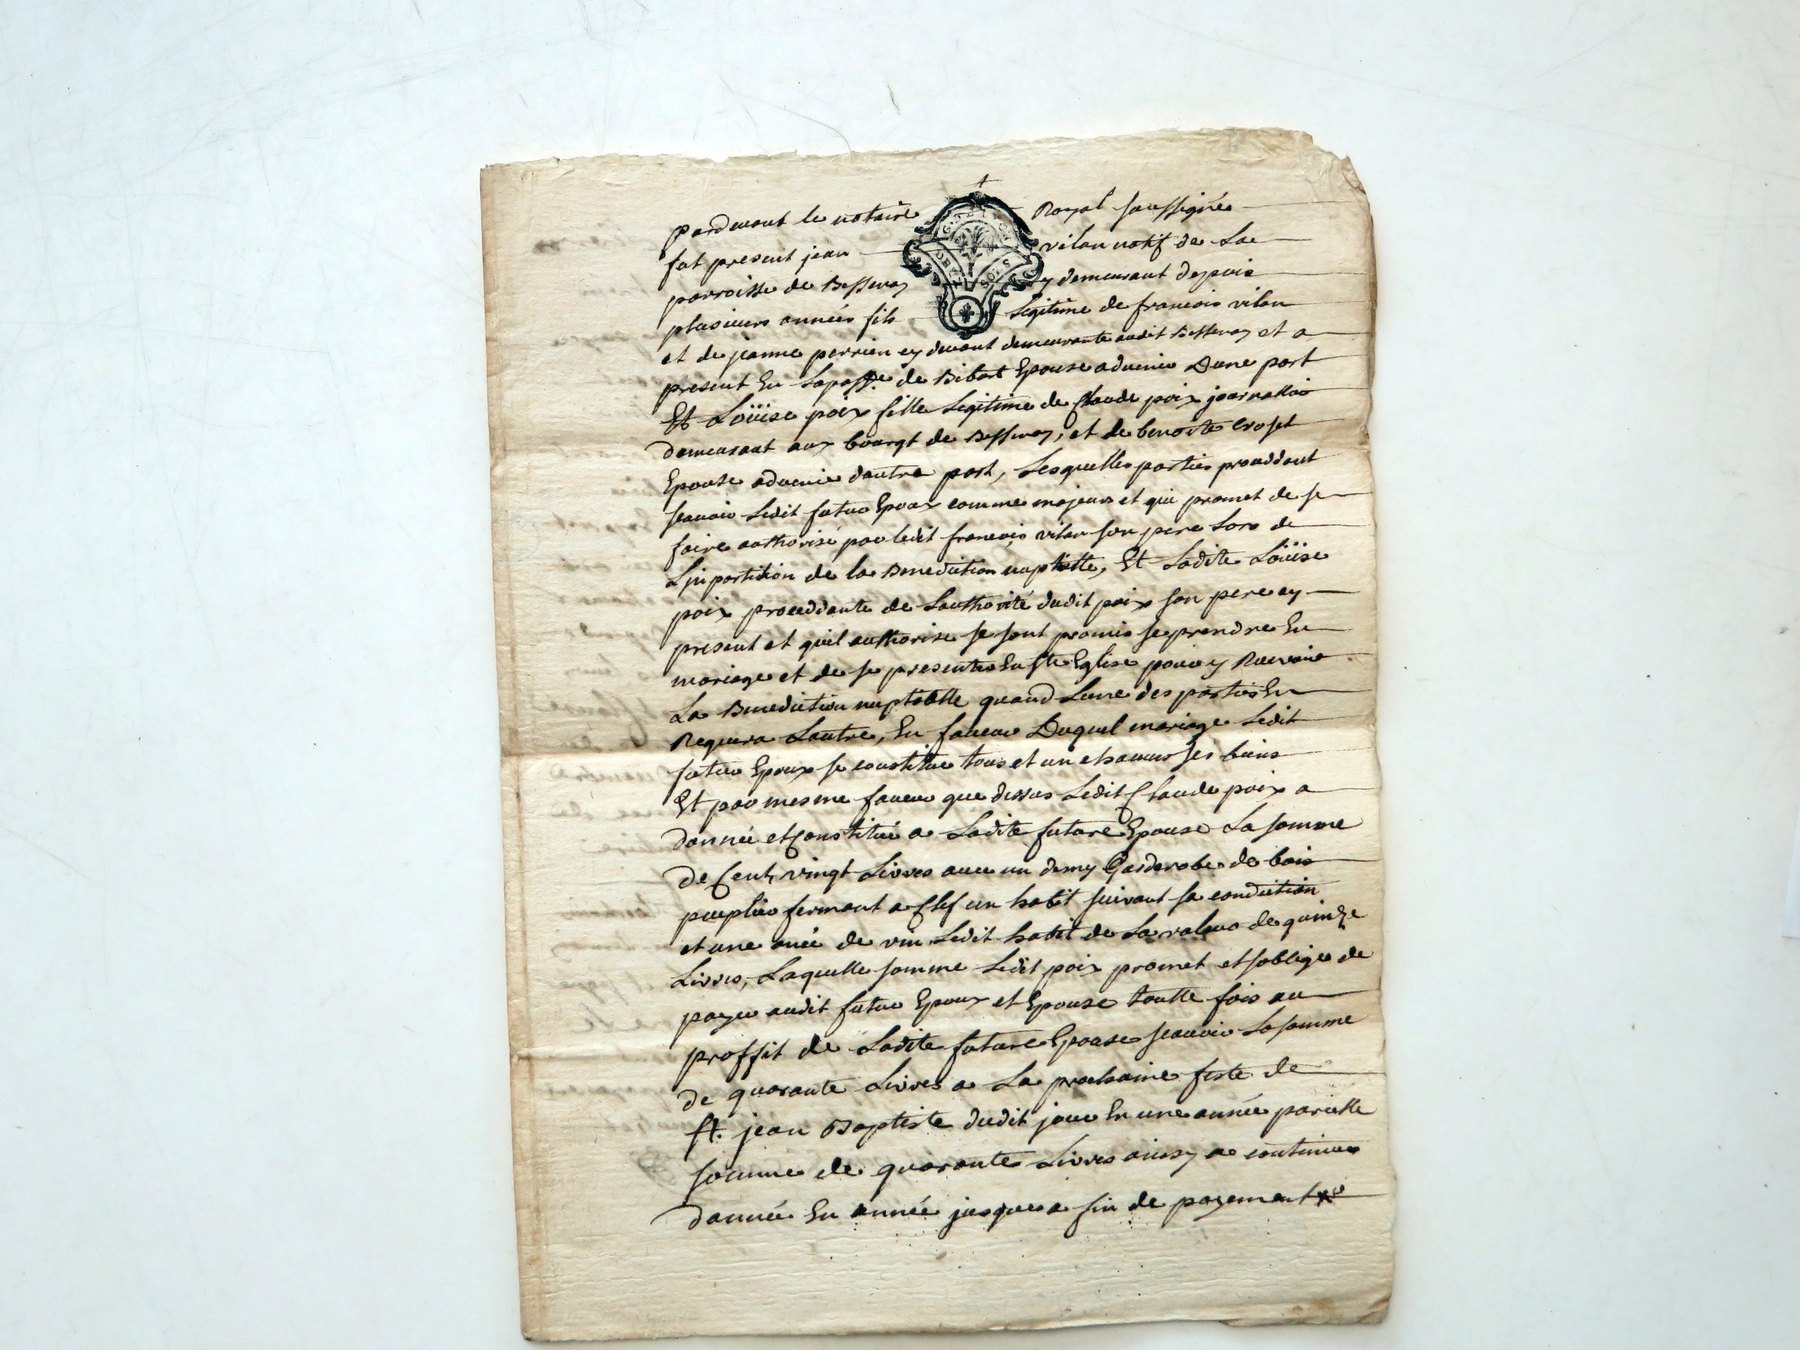 pardevant le notaire Royal soussigné
fut present jean vilan natif de La
parroisse de Bessenay y demeurant depuis
plusieurs années fils Legitime de francois vilan
et de jeanne perrier cy devant demeurante audit Bessenay et a
present En La de Bibost Epouse advenir Dune part
Et Loüise poix fille Legitime de Claude poix journallier
demeurant aux bourgt de Bessenay, et de benoite croset
Epouse advenir dautre part, Lesquelles parties proceddant
scavoir Ledit futur Epoux comme majeur et qui promet de se
faire authorisé par ledit francois vilan son pere Lors de
Linpartition de la Benediction nuptialle, Et Ladite Loüise
poix proceddante de Lauthorité dudit poix son pere cy
present et quil authorise se sont promis se prendre En
mariage et de se presenter En Ste Eglise pour y Recevoir
La Benediction nuptialle quand Lune des parties En
Requera Lautre, En faveur Duquel mariage Ledit
futur Epoux se constitue tous et un chacuns ses biens
Et par mesme faveur que dessus Ledit Claude poix a
donnée et Constitué a Ladite future Epouse La somme
De Cent vingt Livres avec un demy Garderobe de bois
peuplier fermant a Clef un habit suivant sa condition
et une anée de vin Ledit habit de La valeur de quinze
Livres, Laquelle somme Ledit poix promet et soblige de
payer audit futur Epoux et Epouse toutte fois au
proffit de Ladite future Epouse scavoir La somme
de quarante Livres a La prochaine feste de
St. jean Baptiste dudit jour En une année pareille
somme de quarante Livres ainsy a continuer
dannée En année jusques a fin de payement